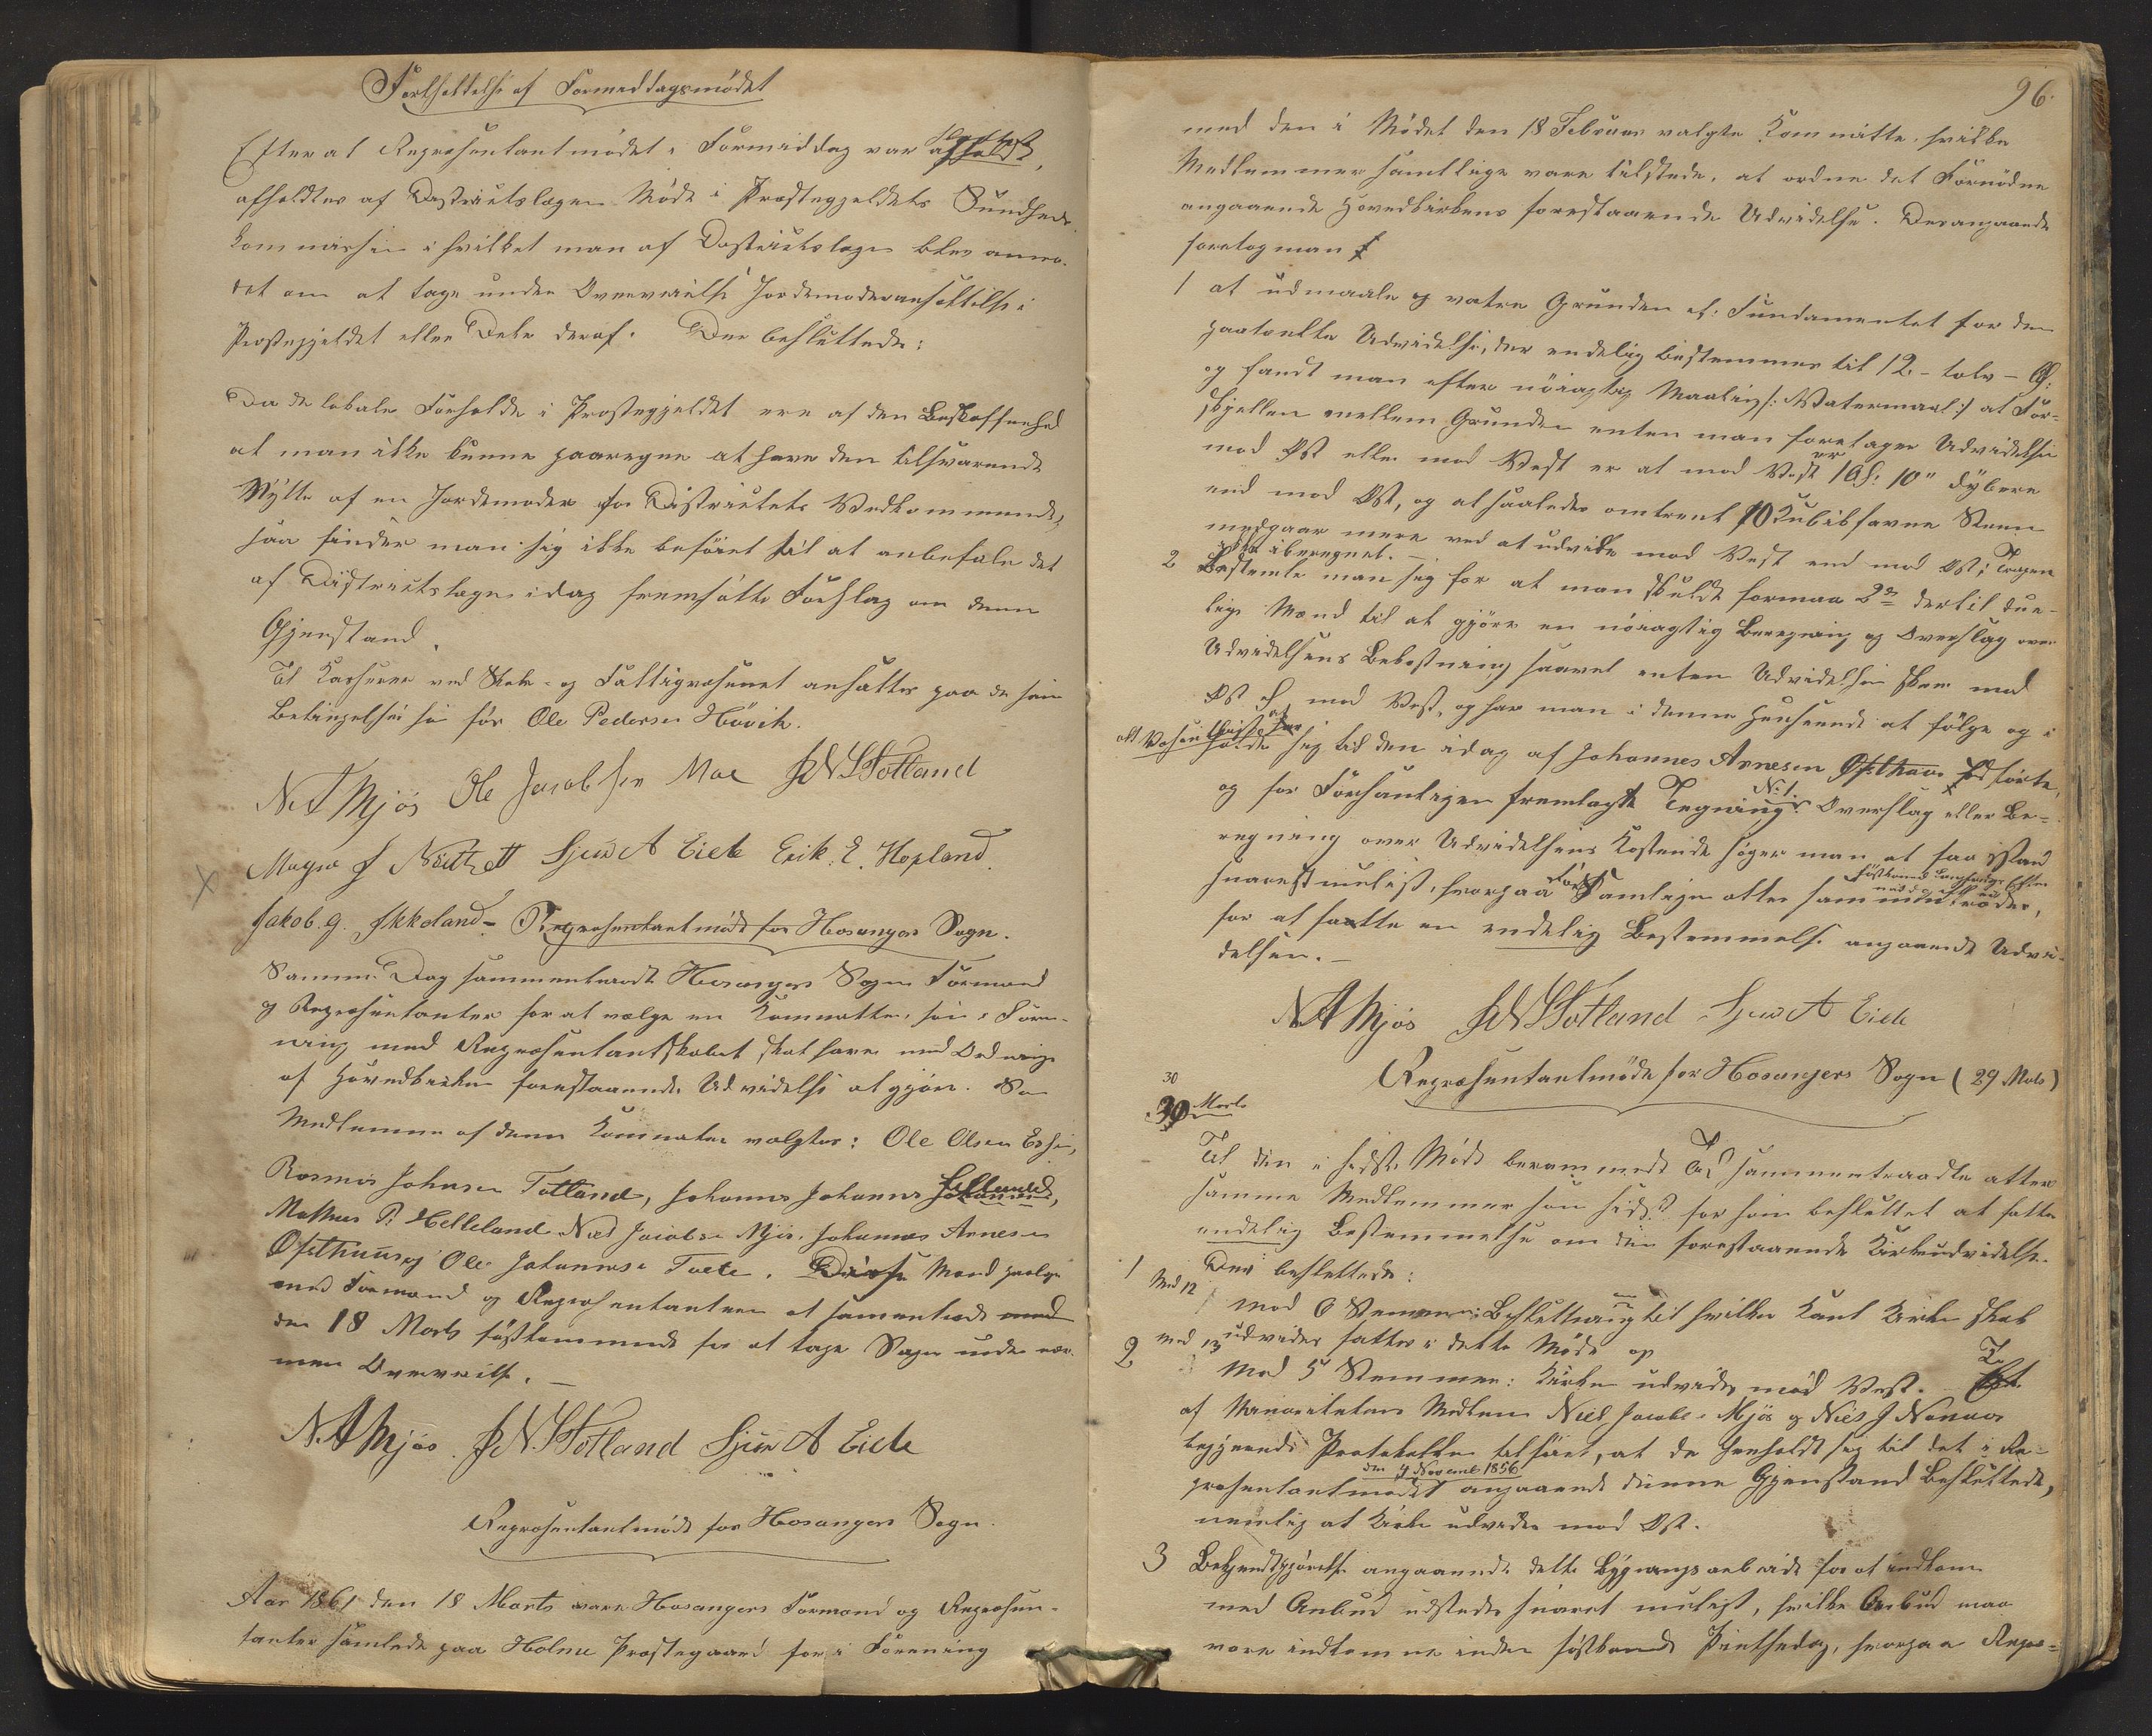 Fortsættelse af Formiddagsmödet
Efter at Repræsentantmödet i Formiddag var
afholdtes af Districtslægen Möde i Præstegjeldets Sundheds
kommission i hvilket man af Districtslægen blev anmo-
det om at tage under Overveielse Jordemoderansættelse i
Præstegjeldet eller Dele deraf. Der besluttedes:
Da de lokale Forholde i Præstegjeldet ere af den Beskaffenhed
at man ikke kunne paaregne at have den tilsvarende
Nytte af en Jordemoder for Districtets Vedkommende,
saa finder man sig ikke beföiet til at anbefale det
af Districtslægen idag fremsatte Forslag om denne
Gjenstand.
Til Kasserer ved Skole- og Fattigvæsenet ansattes paa de samme
Betingelser som för Ole Pedersen Hövik.
N A Mjös Ole Jacobsen Moe
Totland
Magne J Sjur A Eide Erik. E. Hopland.
Jakob. G. Repræsentantmöde for Hosangers Sogn.
Samme Dag sammentraadte Hosangers Sogns Formænd
og Repræsentanter for at vælge en Kommitte, som i Fore-
ning med Repræsentantskabet skal have med Ordningen
af Hovedkirkens forestaaende Udvidelse at gjöre. Som
Medlemmer af denne Kommitte valgtes: Ole Olsen
Rasmus Johnsen Totland, Johannes Johannes
Mathias P. Helleland Niels Jacobsen Mjös, Johannes Arnesen
Ofsthuus og Ole Johannesen Tveite. Disse Mænd paalægges
med Formænd og Repræsentanterne at sammentræde med
den 18 Marts förstkommende for at tage Sagen under nær-
mere Overveielse. —
N. A Mjös Totland Sjur A Eide
Repræsentantmöde for Hosangers Sogn.
Aar 1861 den 18 Marts vare Hosangers Formænd og Repræsen-
tanter samlede paa Holme Præstegaard for i Forening
96.
med den i Mödet den 18 Februar valgte Kommitte, hvilke
Medlemmer samtlige vare tilstede, at ordne det Fornödne
angaaende Hovedkirkens forestaaende Udvidelse. Desangaaende
foretog man
1 at udmaale og vatre Grunden ell: Fundamentet for den
paatænkte Udvidelse, der endelig bestemmes til 12 - tolv - Al:
og fandt man efter nöiagtig Maaling /: Vatermaal :/ at For-
skjellen mellem Grunden enten man foretager Udvidelsen
mod Öst eller mod Vest er at mod Vest er 1 Al: 10" dybere
end mod Öst, og at saaledes omtrent 10 Kubikfavne Steen
medgaar mere ved at udvide mod Vest end mod Öst; Trappen
ikke iberegnet. —
2 Bestemte man sig for at man skulde formaa 2de dertil due-
lige Mænd til at gjöre en nöiagtig Beregning og Overslag over
Udvidelsens Bekostning saavel enten Udvidelsen skeer mod
Öst el. mod Vest, og har man i denne Henseende at fölge og i
alt Væsentligst at holde sig til den idag af Johannes Arnesen Ofsthuus udförte,
og for Forsamlingen fremlagte Tegning No 1. Overslag eller Be-
regning over Udvidelsens Kostende söger man at faa istand
snarest muligst, hvorpaa Forsamlingen atter sammentræder,
förstkommende Langfredags Eftermiddag
for at fatte en endelig Bestemmelse angaaende Udvi-
delsen. —
N A Mjös Totland Sjur A Eide
Repræsentantmöde for Hosangers Sogn (29 Marts)
30
30 Marts
Til den i sidste Möde berammede Tid sammentraadte atter
samme Medlemmer som sidst for som besluttet at fatte
endelig Bestemmelse om den forestaaende Kirkeudvidelse.
Der besluttedes:
1 Med 12 mod 6 Stemmer: Beslutning om til hvilken Kant Kirken skal
udvides fattes i dette Möde og
2 Med 13 mod 5 Stemmer: Kirken udvides mod Vest. To
af Minoritetens Medlemmer Niels Jacobsen Mjös og Niels J
begjærede Protokollen tilfört, at de henholdt sig til det i Re-
præsentantmödet den 4 Novemb 1856 angaaende denne Gjenstand Besluttede,
nemlig at Kirken udvides mod Öst.
3 Bekjendtgjörelse angaaende dette Bygningsarbeide for at indkomme
med Anbud udstedes snarest muligt, hvilke Anbud maa
være indkomne inden förstkommende Pintsedag, hvorpaa Repræ-